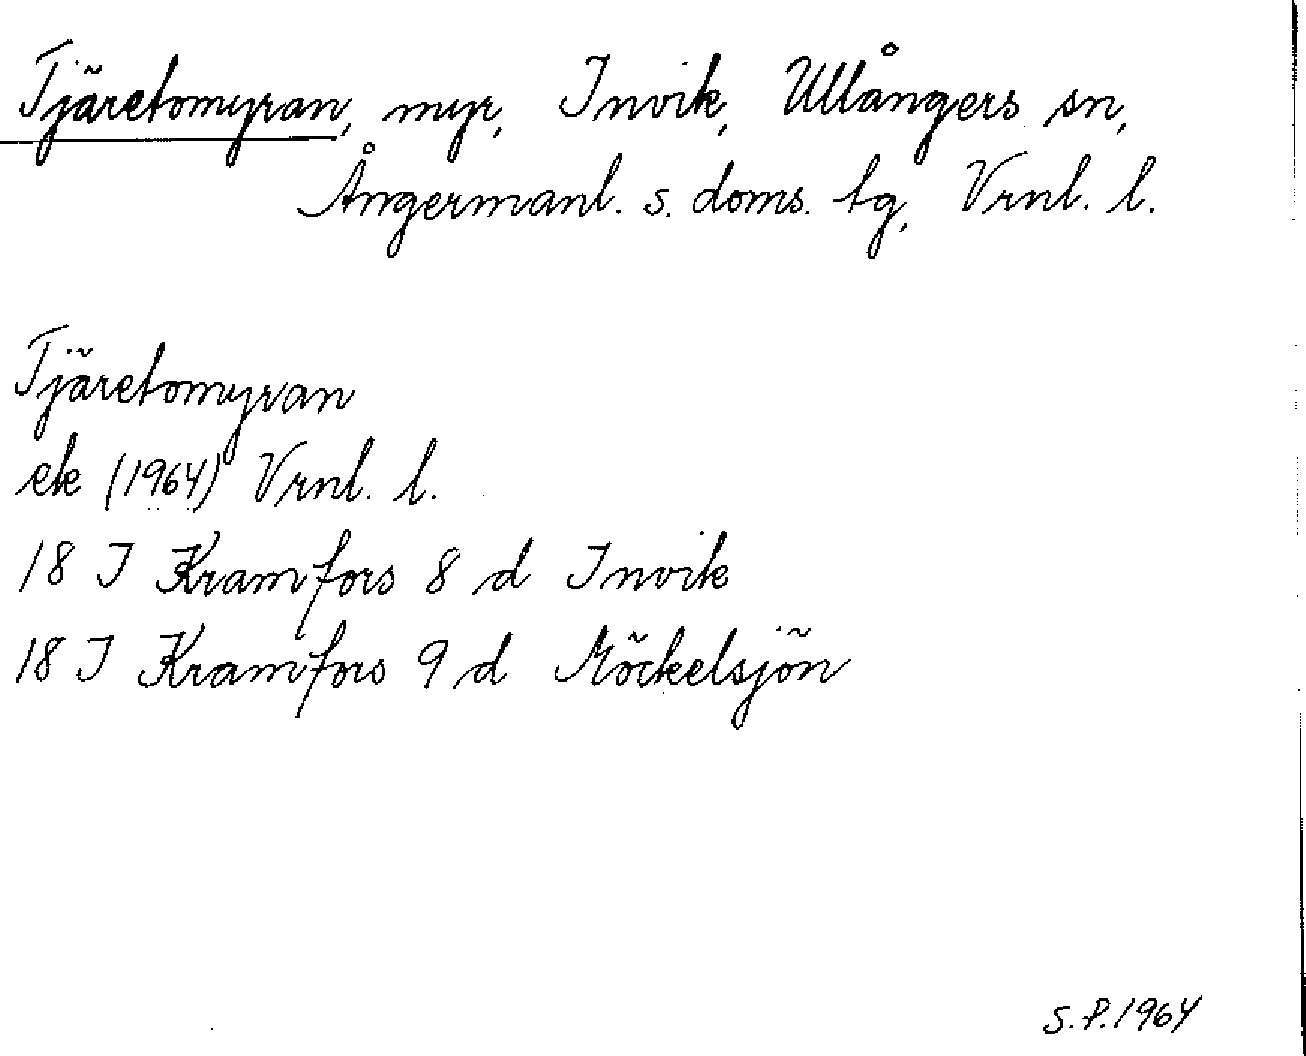 Tjäretomyran, myr, Invik, Ullångers sn,
Ångermanl. s. doms. tg, Vrnl. l.
Tjäretomyran
ek (1964) Vrnl. l.
18 I Kramfors 8 d Invik
18 I Kramfors 9 d Möckelsjön
S.P. 1964